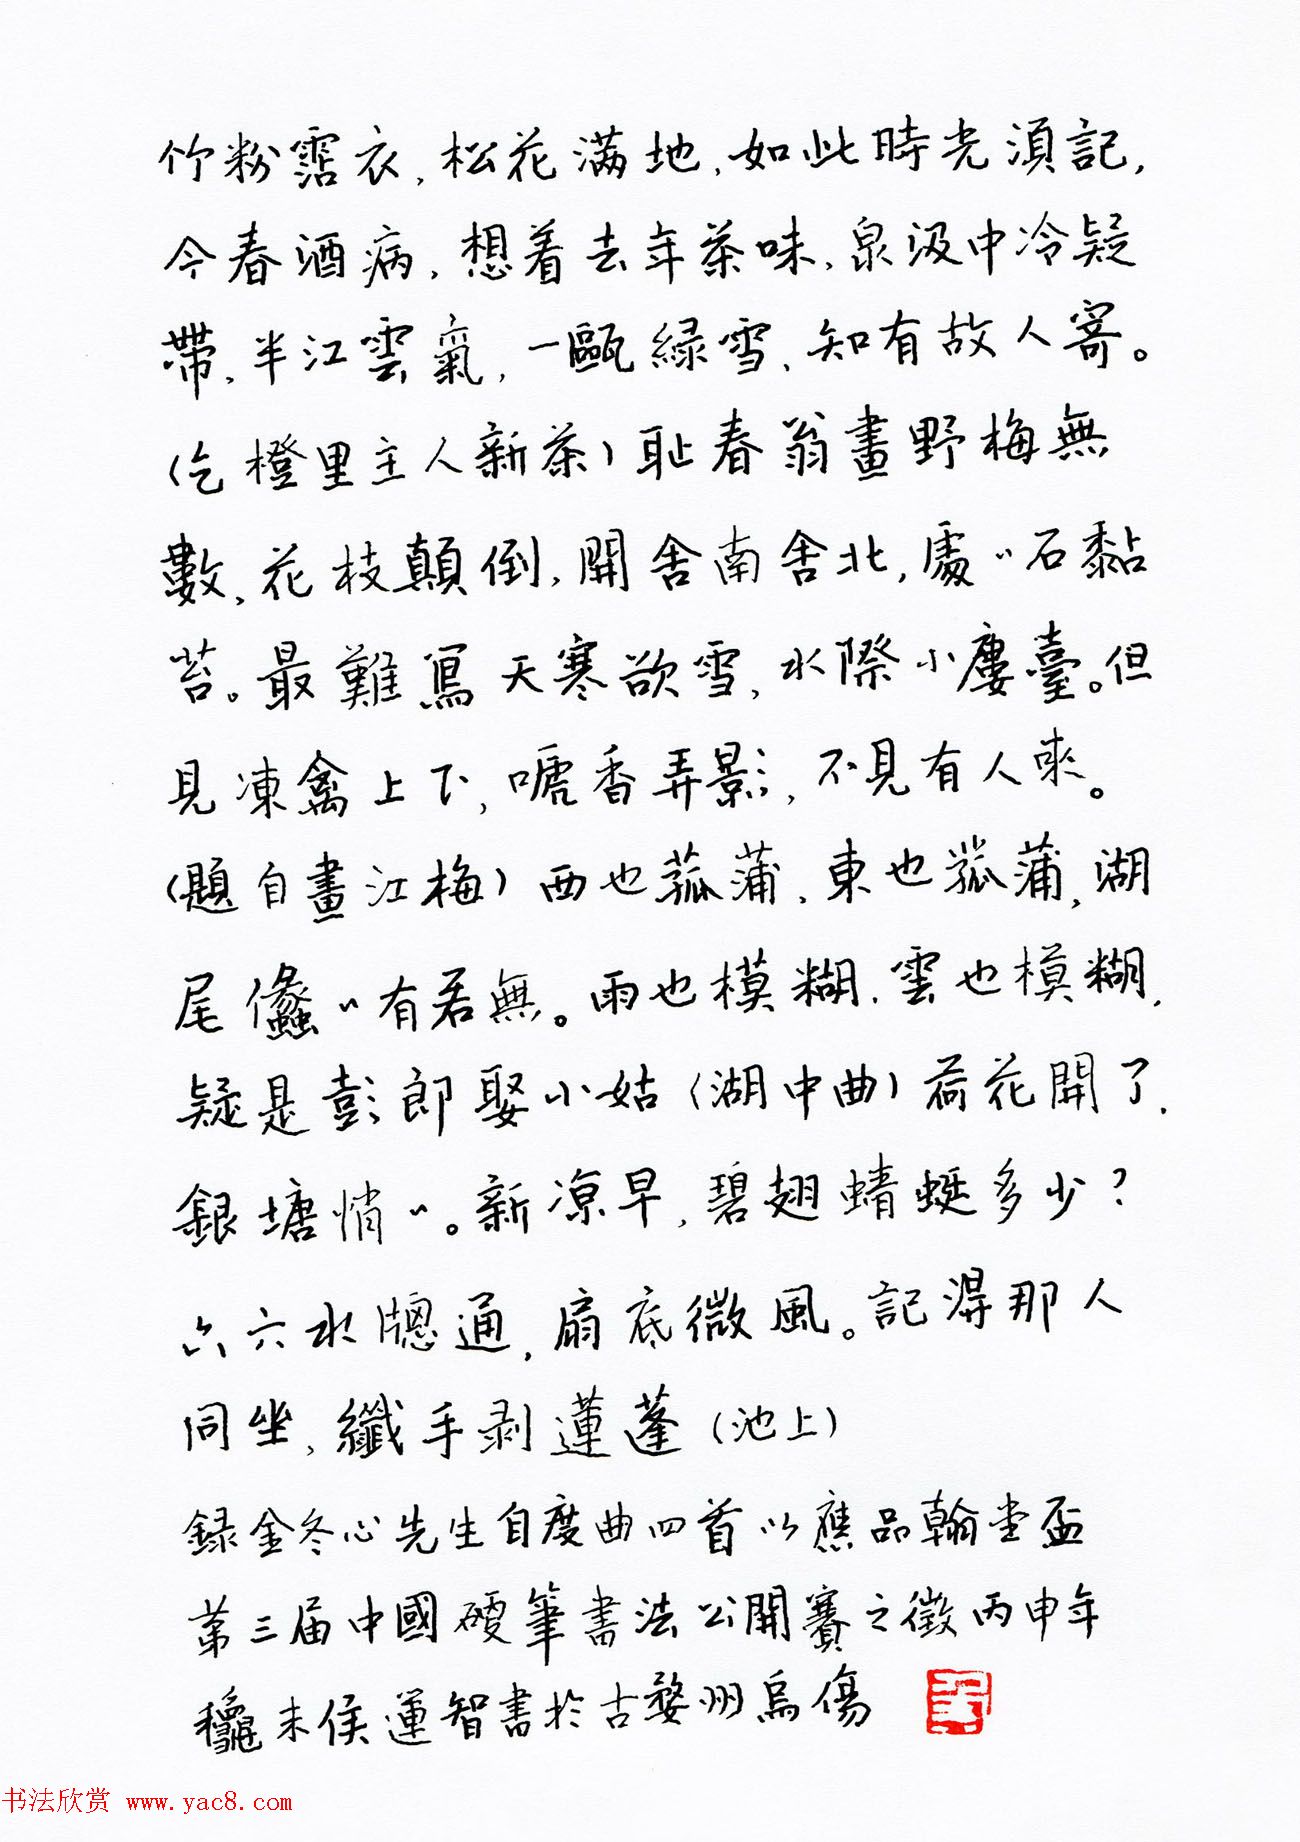 竹粉霑衣，松花滿地，如此時光須記，
今春酒病，想着去年茶味，泉汲中冷疑
帶，半江雲氣，一甌綠雪，知有故人寄。
（乞橙里主人新茶）耻春翁畫野梅無
數，花枝顛倒，開舍南舍北，處〃石黏
苔。最難寫天寒欲雪，水際小廔臺。但
見凍禽上下，嗁香弄影，不見有人來。
（題自畫江梅）西也菰蒲，東也菰蒲，湖
尾儵〃有若無。雨也模糊，雲也模糊，
疑是彭郎娶小姑（湖中曲）荷花開了，
銀塘悄〃。新凉早，碧翅蜻蜓多少？
六六水牕通，扇底微風。記得那人
同坐，纖手剥蓮蓬（池上）
録金冬心先生自度曲四首以應品翰堂盃
第三届中國硬筆書法公開賽之徵丙申年
龝末侯運智書於古婺州烏傷
书法欣赏 www.yac8.com